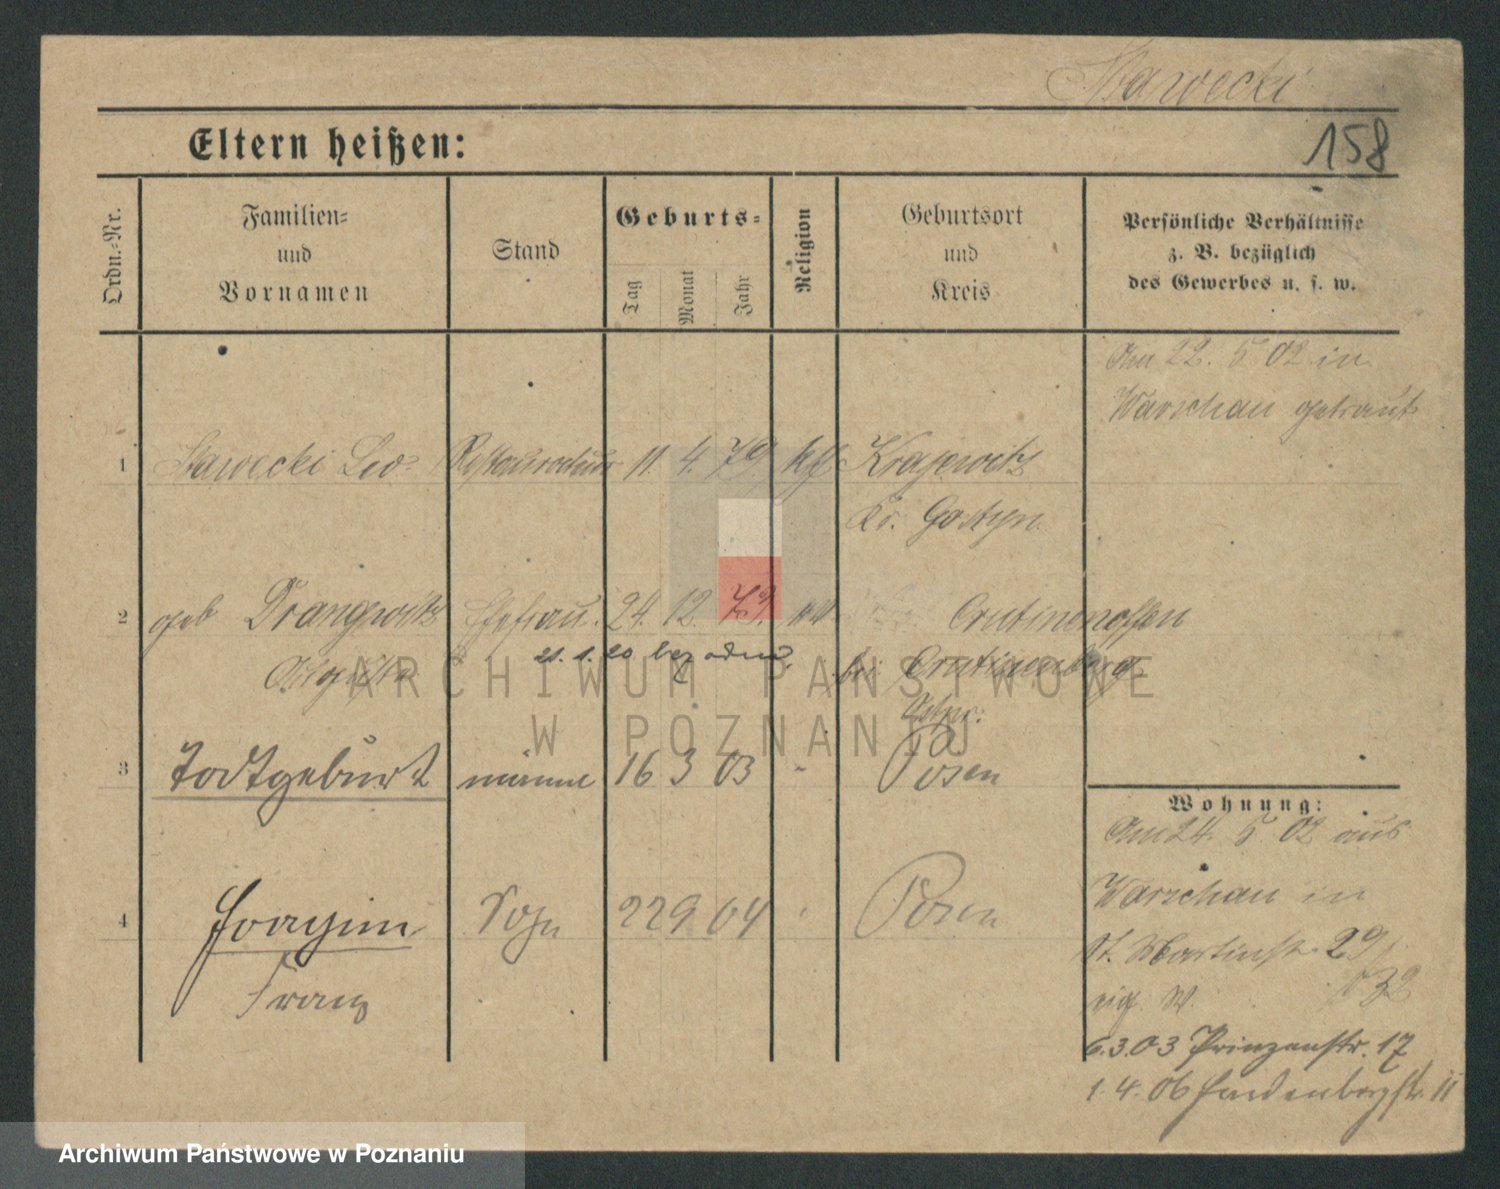 Sławecki
Eltern heißen:
158
Ordn.-Nr.
Familien-
und
Vornamen
Stand
Geburts-
Tag
Monat
Jahr
Religion
Geburtsort
und
Kreis
Persönliche Verhältnisse
z. B. bezüglich
des Gewerbes u. s. w.
Am 22. 5 02 in
Warschau getraut
1 Sławecki Leo Restaurateur 11. 4. 79 kfl Krajewitz
Kr. Gostyn
2 geb Drangwitz Ehefrau 24. 12. 79.
Crutinnenofen
21. 1. 20
bei Crutinnen
Ostpr.
3 Todtgeburt männl 16 3 03 " Posen
Wohnung:
Am 24. 5 02 aus
Warschau in
4 Joachim Sohn 22 9 04 " Posen
St. Martinstr. 29/
Franz
32
eig. W.
6.3.03 Prinzenstr. 17
1. 4. 06 Hindenburgstr. 11
ARCHIWUM PAŃSTWOWE
W POZNANIU
Archiwum Państwowe w Poznaniu